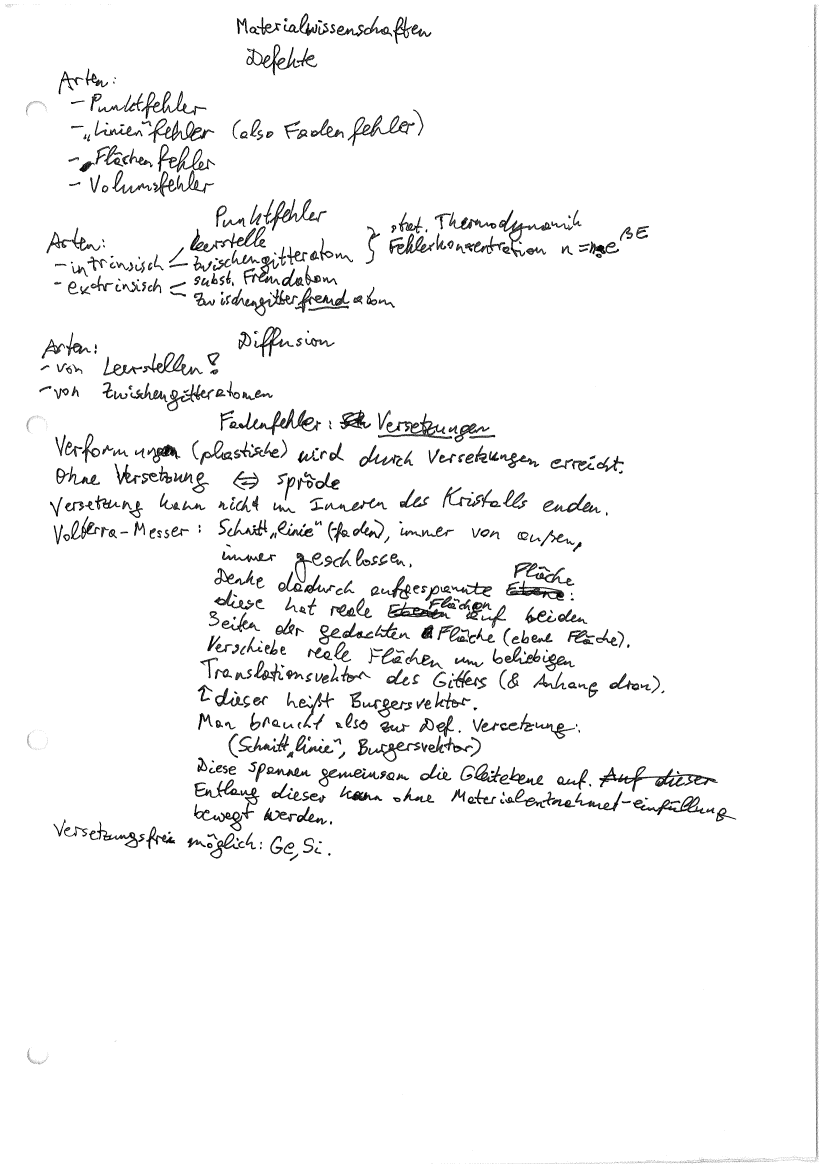 Materialwissenschaften
Defekte
Arten:
- Punktfehler
- „Linien"fehler (also Fadenfehler)
- Flächenfehler
- Volumsfehler
Punktfehler
Arten:
- intrinsisch < Leerstelle
Zwischengitteratom } stat. Thermodynamik
Fehlerkonzentration n = n₀e^βE
- extrinsisch < subst. Fremdatom
Zwischengitterfremdatom
Diffusion
Arten:
- von Leerstellen!
- von Zwischengitteratomen
Fadenfehler: Versetzungen
Verformungen (plastische) wird durch Versetzungen erreicht.
Ohne Versetzung ⇔ spröde
Versetzung kann nicht im Inneren des Kristalls enden.
Volterra-Messer: Schnitt„linie" (-faden), immer von außen,
immer geschlossen.
Denke dadurch aufgespannte Ebene Fläche:
diese hat reale Ebenen Flächen auf beiden
Seiten der gedachten Fläche (ebene Fläche).
Verschiebe reale Flächen um beliebigen
Translationsvektor des Gitters (& Anhang dran).
↑ dieser heißt Burgersvektor.
Man braucht also zur Def. Versetzung:
(Schnitt„linie", Burgersvektor)
Diese spannen gemeinsam die Gleitebene auf. Auf dieser
Entlang dieser kann ohne Materialentnahme/-einfüllung
bewegt werden.
Versetzungsfrei möglich: Ge, Si.